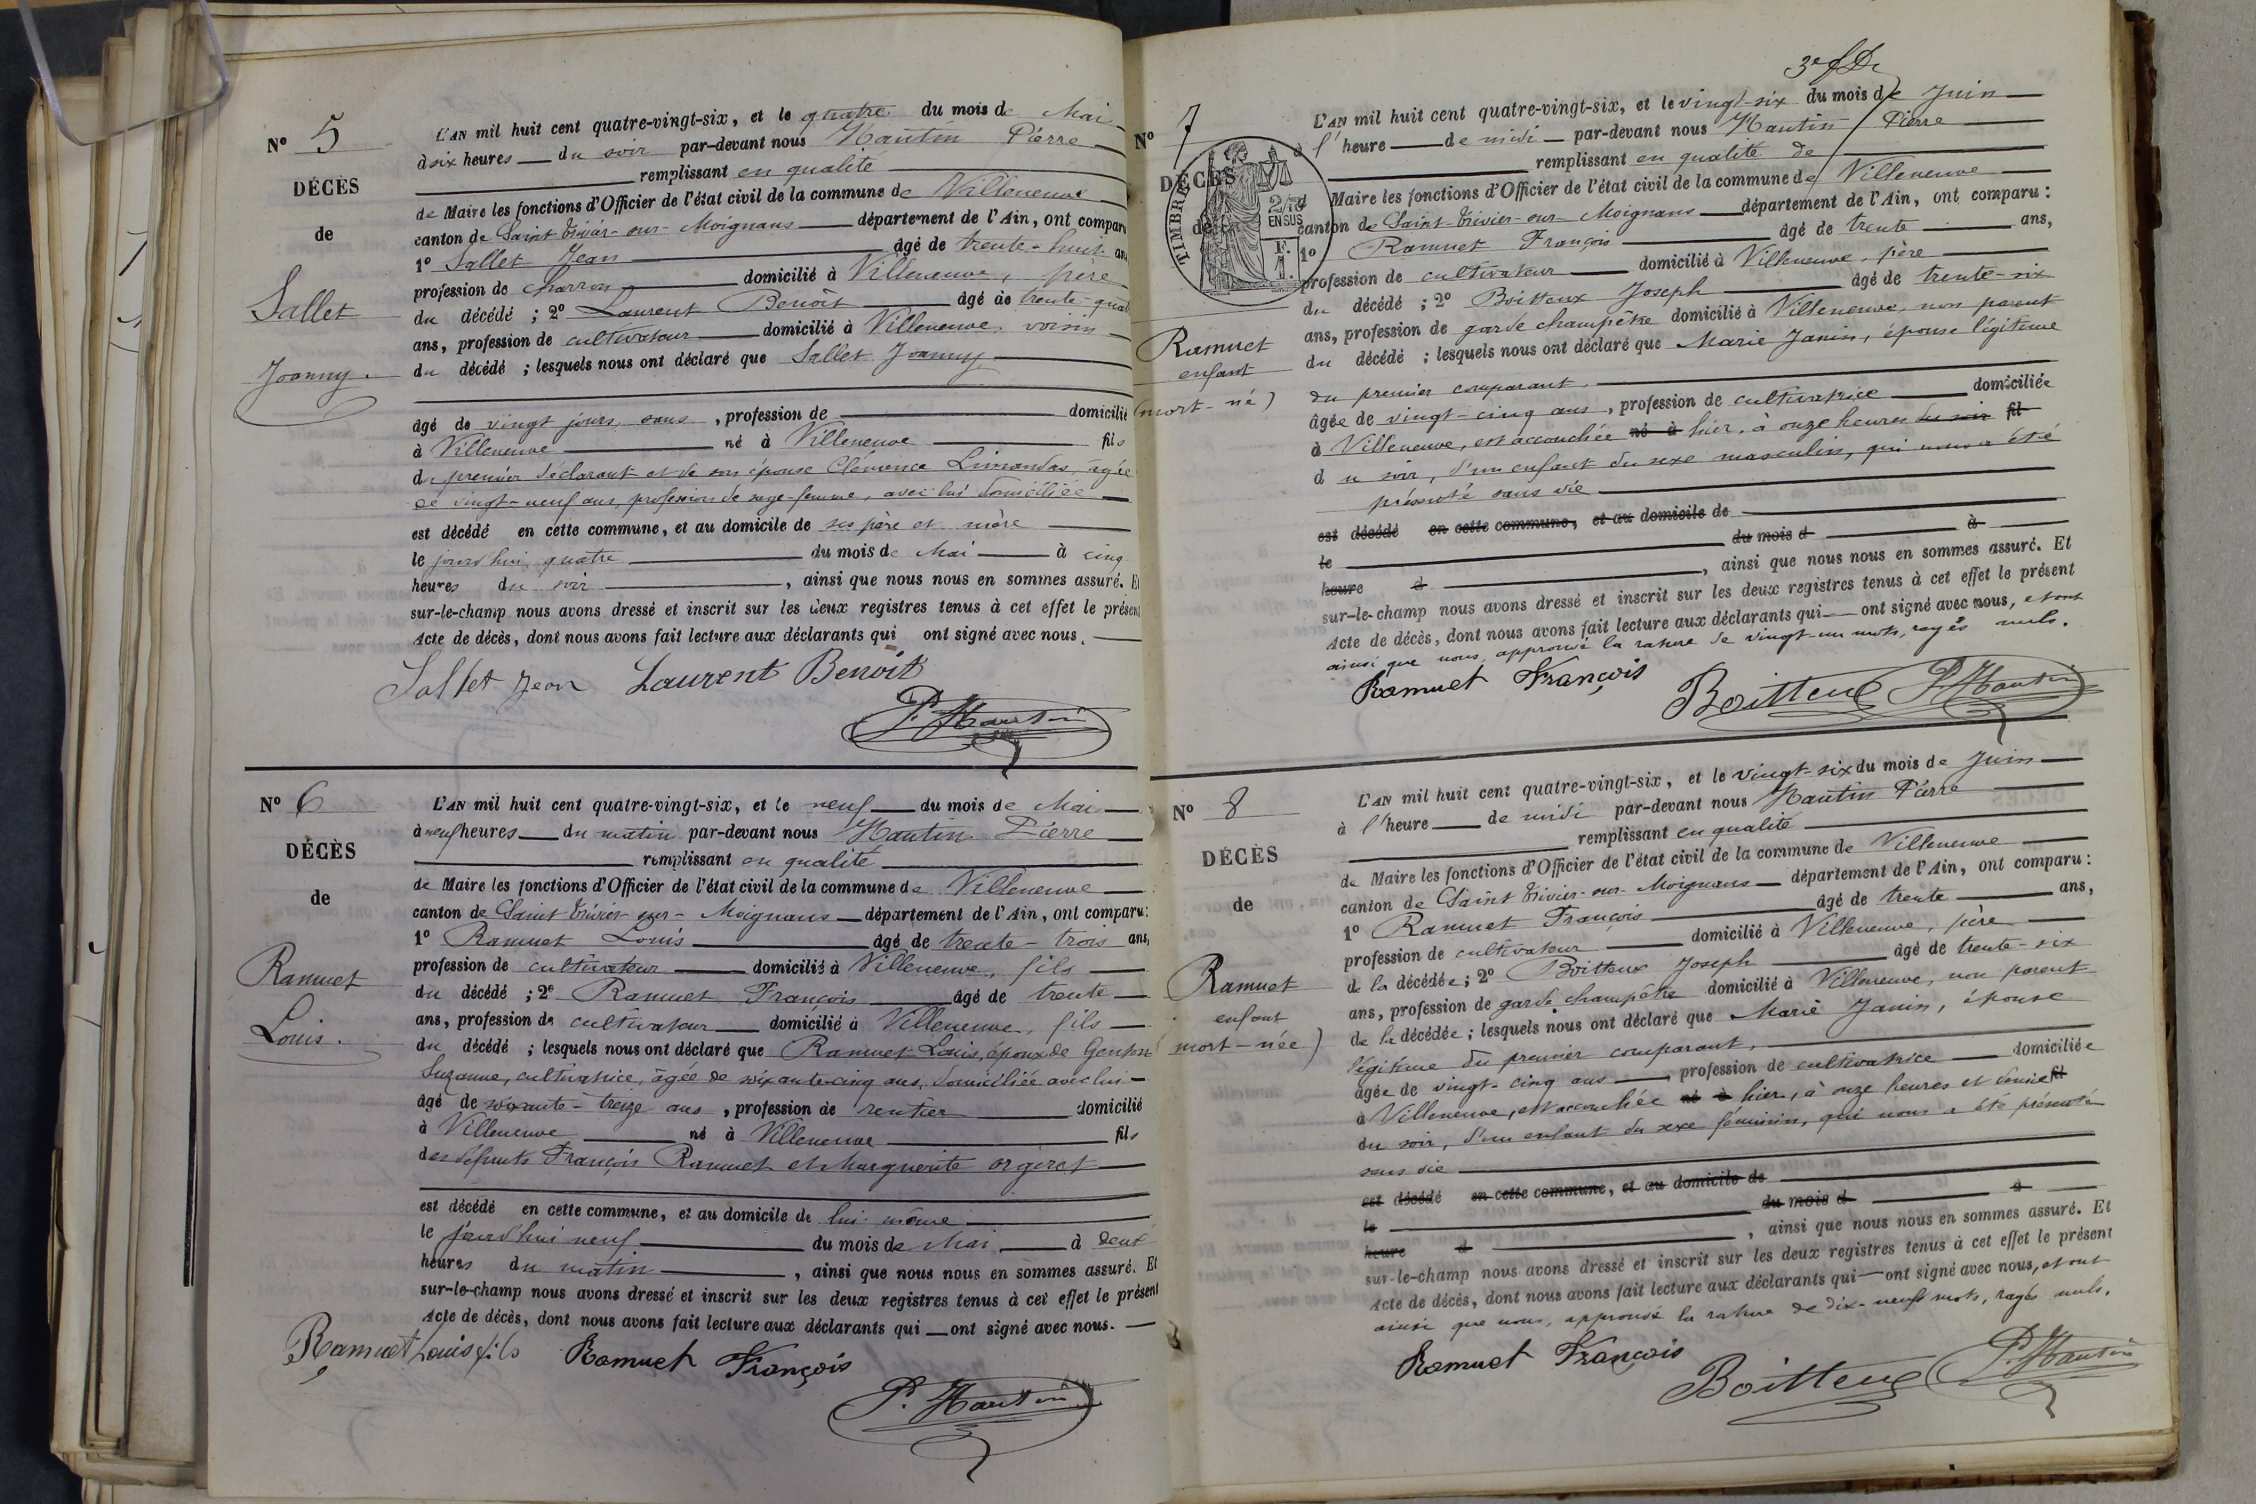 Nº 5
DÉCÈS
de
Sallet
Joanny.
L'AN mil huit cent quatre-vingt-six, et le quatre du mois de Mai
à six heures du soir par-devant nous Hautin Pierre
remplissant en qualité
de Maire les fonctions d'Officier de l'état civil de la commune de Villeneuve
canton de Saint Trivier-sur-Moignans département de l'Ain, ont comparu
1º Sallet Jean âgé de trente-huit ans
profession de charron domicilié à Villeneuve, père
du décédé ; 2º Laurent Benoît âgé de trente-quat
ans, profession de cultivateur domicilié à Villeneuve, voisin
du décédé ; lesquels nous ont déclaré que Sallet Joanny
âgé de vingt jours, sans , profession de domicilié
à Villeneuve né à Villeneuve fils
du premier déclarant et de son épouse Clémence Limandas, âgée
de vingt-neuf ans, profession de sage-femme, avec lui domiciliée
est décédé en cette commune, et au domicile de ses père et mère
le jourd'hui quatre du mois de Mai à cinq
heures du soir , ainsi que nous nous en sommes assuré. Et
sur-le-champ nous avons dressé et inscrit sur les deux registres tenus à cet effet le présent
Acte de décès, dont nous avons fait lecture aux déclarants qui ont signé avec nous.
Sallet Jean Laurent Benoit
P. Hautin
Nº 6
DÉCÈS
de
Ramuet
Louis.
L'AN mil huit cent quatre-vingt-six, et le neuf du mois de Mai
à neuf heures du matin par-devant nous Hautin Pierre
remplissant en qualité
de Maire les fonctions d'Officier de l'état civil de la commune de Villeneuve
canton de Saint Trivier-sur-Moignans département de l'Ain, ont comparu :
1º Ramuet Louis âgé de trente-trois ans,
profession de cultivateur domicilié à Villeneuve, fils
du décédé ; 2º Ramuet François âgé de trente
ans, profession de cultivateur domicilié à Villeneuve, fils
du décédé ; lesquels nous ont déclaré que Ramuet Louis, époux de Genton
Suzanne, cultivatrice, âgée de soixante-cinq ans, domiciliée avec lui
âgé de soixante-treize ans , profession de rentier domicilié
à Villeneuve né à Villeneuve fils
des défunts François Ramuet et Marguerite orgeret
est décédé en cette commune, et au domicile de lui-même
le jourd'hui neuf du mois de Mai à deux
heures du matin , ainsi que nous nous en sommes assuré. Et
sur-le-champ nous avons dressé et inscrit sur les deux registres tenus à cet effet le présent
Acte de décès, dont nous avons fait lecture aux déclarants qui ont signé avec nous.
Ramuet Louis fils Ramuet François
P. Hautin
Nº 7
TIMBRE
2/10 EN SUS
DÉCÈS
de
Ramuet
enfant
(mort-né)
L'AN mil huit cent quatre-vingt-six, et le vingt-six du mois de Juin
à l'heure de midi par-devant nous Hautin Pierre
remplissant en qualité de
Maire les fonctions d'Officier de l'état civil de la commune de Villeneuve
canton de Saint-Trivier-sur-Moignans département de l'Ain, ont comparu :
1º Ramuet François âgé de trente ans,
profession de cultivateur domicilié à Villeneuve, père
du décédé ; 2º Boitteux Joseph âgé de trente-six
ans, profession de garde champêtre domicilié à Villeneuve, non parent
du décédé ; lesquels nous ont déclaré que Marie Janin, épouse légitime
du premier comparant.
âgée de vingt-cinq ans , profession de cultivatrice domiciliée
à Villeneuve, est accouchée né à hier, à onze heures du soir fil
d u soir, d'un enfant du sexe masculin, qui nous a été
présenté sans vie
est décédé en cette commune, et au domicile de
le du mois d à
heure d , ainsi que nous nous en sommes assuré. Et
sur-le-champ nous avons dressé et inscrit sur les deux registres tenus à cet effet le présent
Acte de décès, dont nous avons fait lecture aux déclarants qui ont signé avec nous, et ont
ainsi que nous, approuvé la rature de vingt-un mots, rayés nuls.
Ramuet François Boitteux P. Hautin
Nº 8
DÉCÈS
de
Ramuet
enfant
(mort-née)
L'AN mil huit cent quatre-vingt-six, et le vingt-six du mois de Juin
à l'heure de midi par-devant nous Hautin Pierre
remplissant en qualité
de Maire les fonctions d'Officier de l'état civil de la commune de Villeneuve
canton de Saint Trivier-sur-Moignans département de l'Ain, ont comparu :
1º Ramuet François âgé de trente ans,
profession de cultivateur domicilié à Villeneuve, père
de la décédée ; 2º Boitteux Joseph âgé de trente-six
ans, profession de garde champêtre domicilié à Villeneuve, non parent
de la décédée ; lesquels nous ont déclaré que Marie Janin, épouse
légitime du premier comparant,
âgée de vingt-cinq ans , profession de cultivatrice domiciliée
à Villeneuve, est accouchée né à hier, à onze heures et demie fil
du soir, d'un enfant du sexe féminin, qui nous a été présenté
sans vie
est décédé en cette commune, et au domicile de
le du mois d à
heure d , ainsi que nous nous en sommes assuré. Et
sur-le-champ nous avons dressé et inscrit sur les deux registres tenus à cet effet le présent
Acte de décès, dont nous avons fait lecture aux déclarants qui ont signé avec nous, et ont
ainsi que nous, approuvé la rature de dix-neuf mots, rayés nuls.
Ramuet François Boitteux P. Hautin